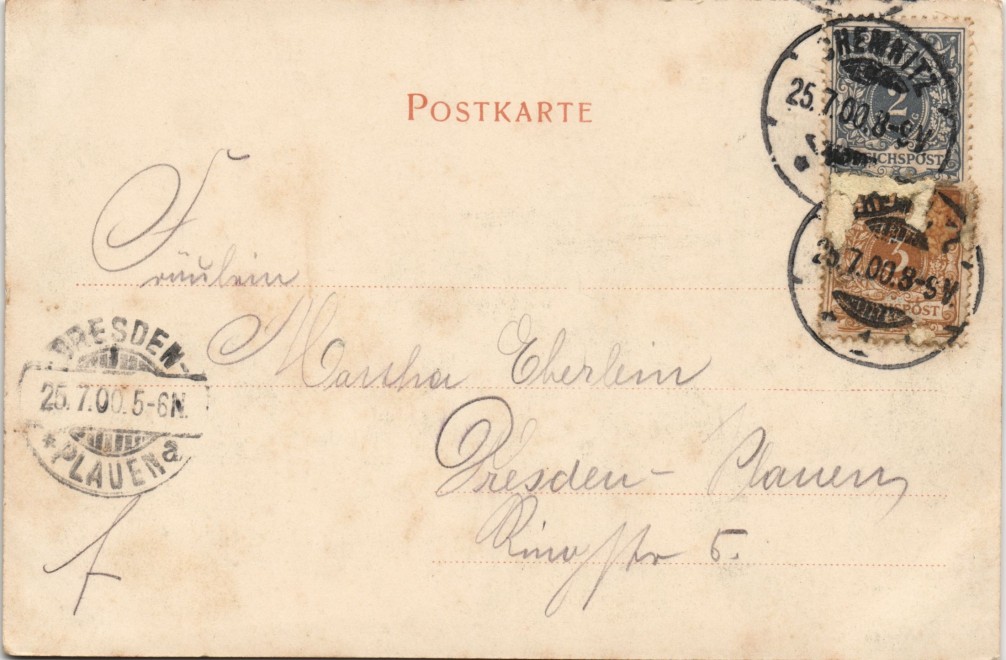 POSTKARTE
CHEMNITZ
25.7.00.8-9V
2
REICHSPOST
25.7.00.8-9V
3
Fräulein
Martha Eberlein
Dresden-Plauen,
Ringstr 5.
DRESDEN-
25.7.00.5-6N.
*PLAUEN a